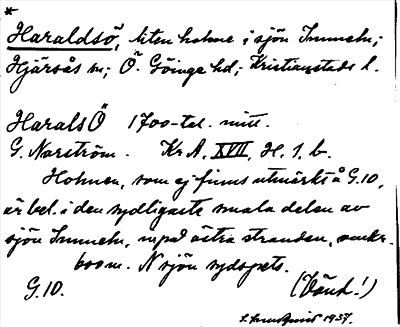 *
Haraldsö, liten holme i sjön Immeln;
Hjärsås sn; Ö. Göinge hd; Kristianstads l.
HaralsÖ 1700-tal. mitt.
G. Norström. Kr A, XVII, H. 1. b.
Holmen, som ej finns utmärkt å G.10,
är bel. i den sydligaste smala delen av
sjön Immeln, invid östra stranden, omkr.
600 m. N sjön sydspets.
G.10. (Vänd!)
1937.